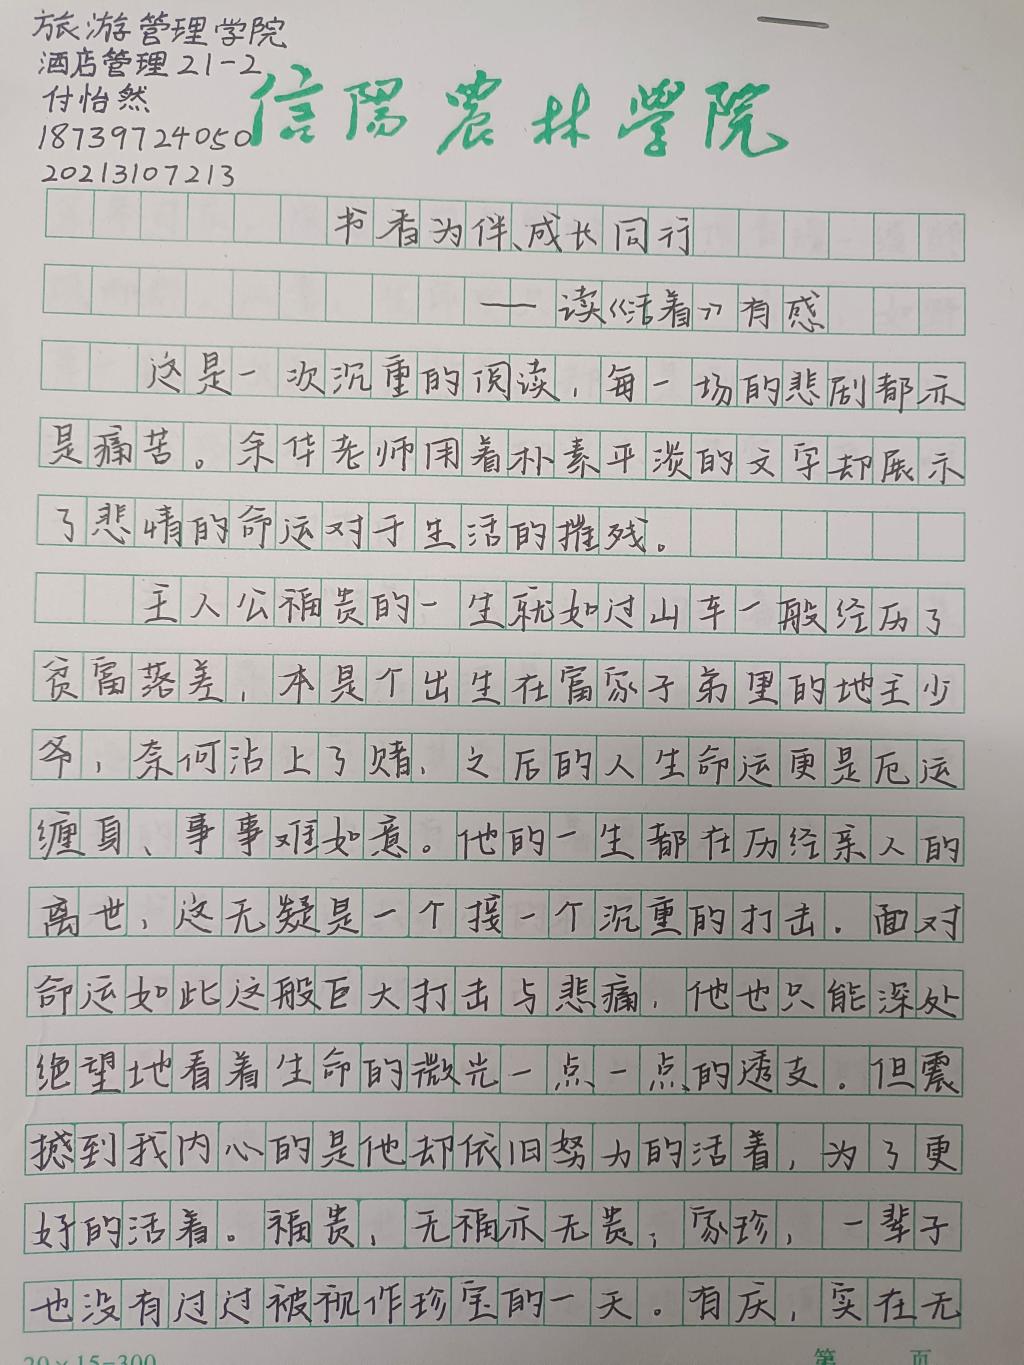 旅游管理学院
酒店管理21-2
付怡然
18739724050
20213107213
信陽農林學院
书香为伴、成长同行
——读《活着》有感
这是一次沉重的阅读，每一场的悲剧都亦
是痛苦。余华老师用着朴素平淡的文字却展示
了悲情的命运对于生活的摧残。
主人公福贵的一生就如过山车一般经历了
贫富落差，本是个出生在富家子弟里的地主少
爷，奈何沾上了赌，之后的人生命运更是厄运
缠身、事事难如意。他的一生都在历经亲人的
离世，这无疑是一个接一个沉重的打击．面对
命运如此这般巨大打击与悲痛，他也只能深处
绝望地看着生命的微光一点一点的透支．但震
撼到我内心的是他却依旧努力的活着，为了更
好的活着。福贵，无福亦无贵，家珍，一辈子
也没有过过被视作珍宝的一天。有庆，实在无
20×15=300
第 页